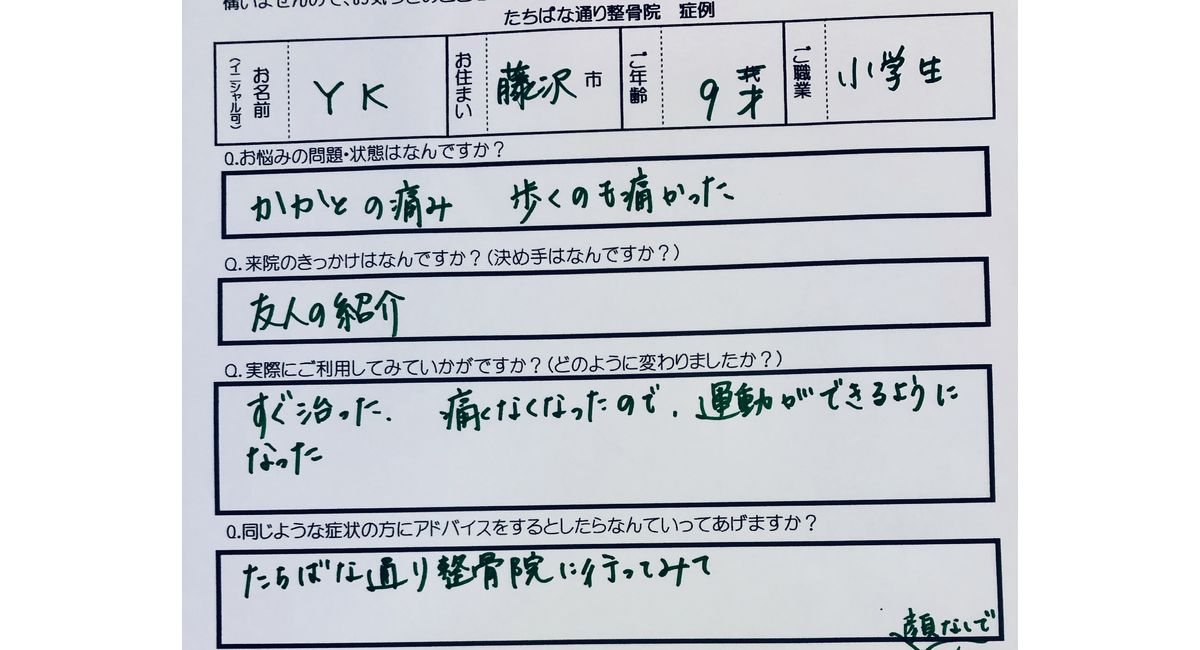 構いませんので、お気
たちばな通り整骨院 症例
お名前 (イニシャル可) YK お住まい 藤沢市 ご年齢 9才 ご職業 小学生
Q.お悩みの問題・状態はなんですか？
かかとの痛み 歩くのも痛かった
Q.来院のきっかけはなんですか？(決め手はなんですか？)
友人の紹介
Q.実際にご利用してみていかがですか？(どのように変わりましたか？)
すぐ治った. 痛くなくなったので、運動ができるように
なった
Q.同じような症状の方にアドバイスをするとしたらなんていってあげますか？
たちばな通り整骨院に行ってみて
顔なしで